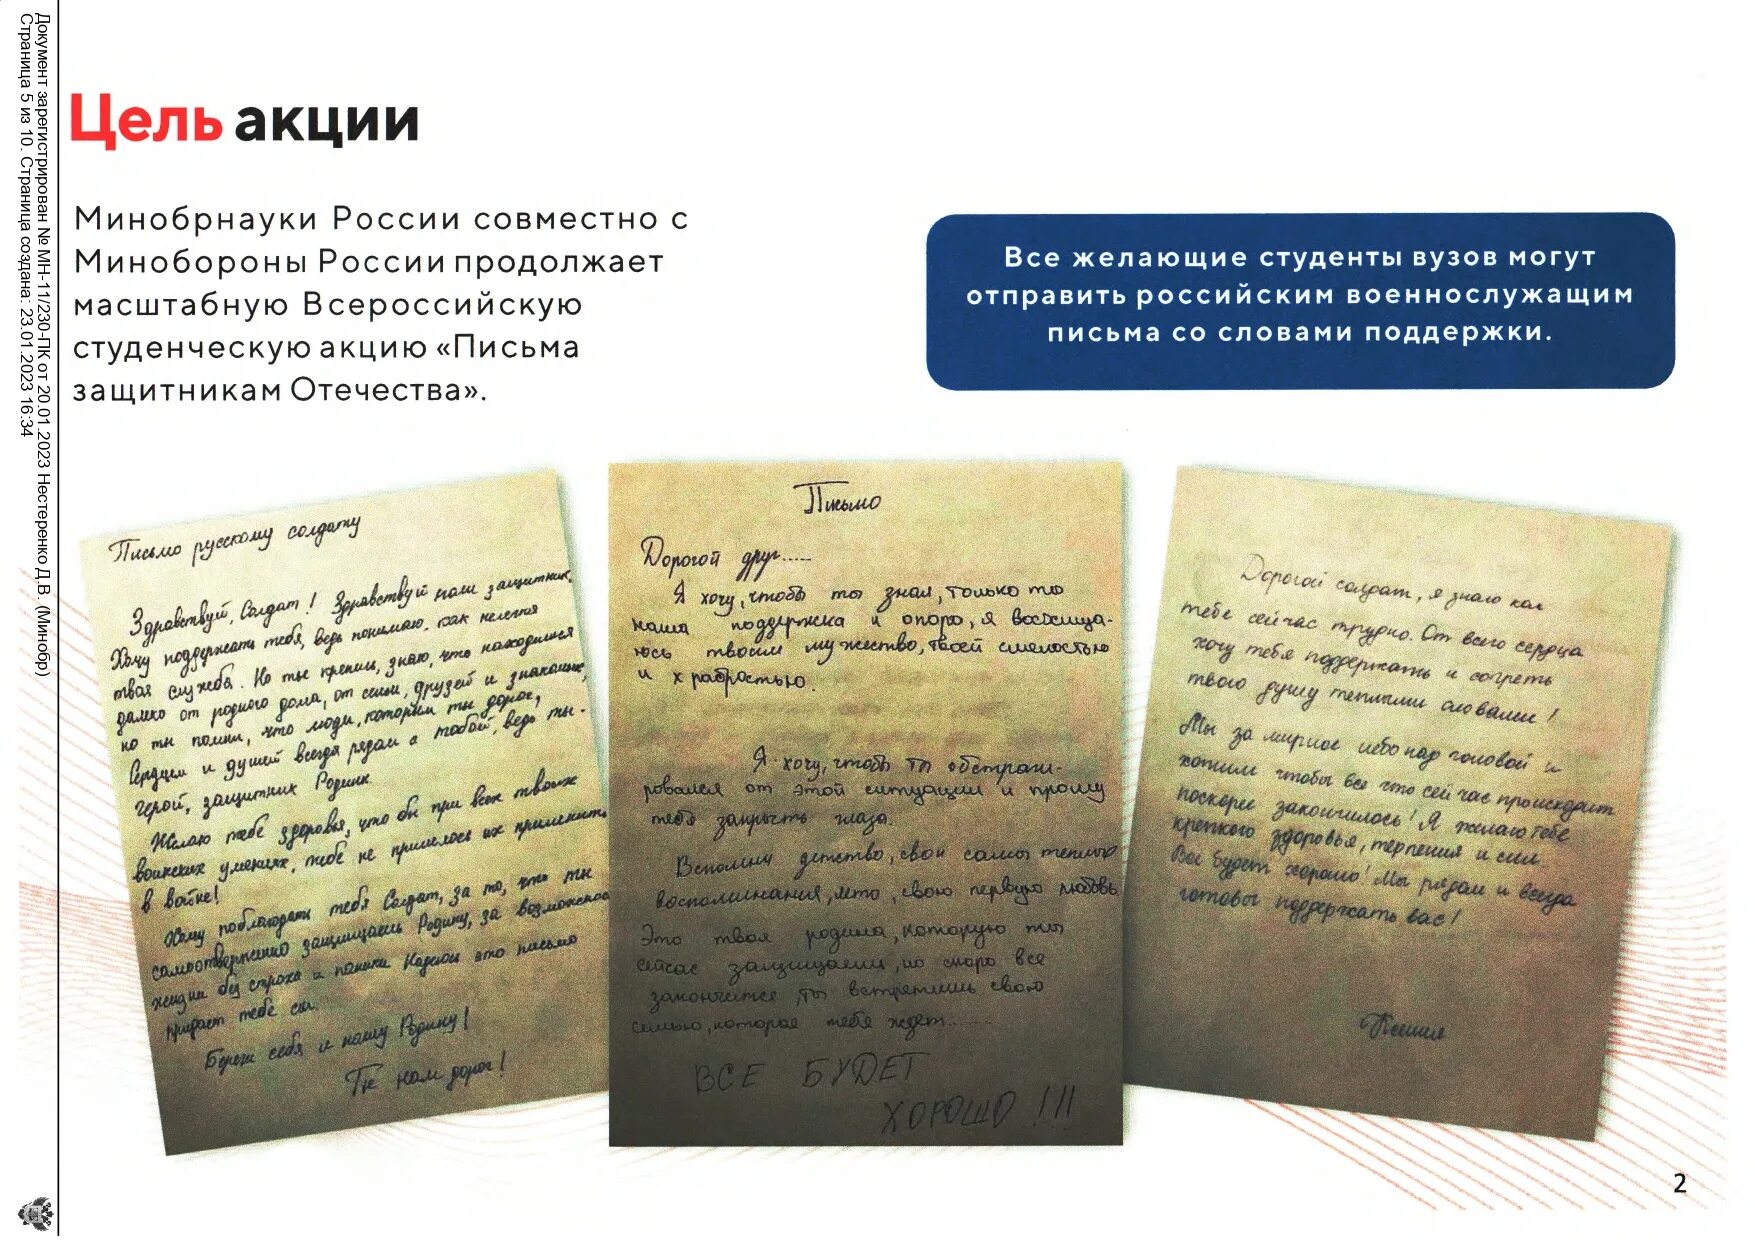 Документ зарегистрирован № МН-11/230-ПК от 20.01.2023 Нестеренко Д.В. (Минобр)
Страница 5 из 10. Страница создана: 23.01.2023 16:34
Цель акции
Минобрнауки России совместно с
Минобороны России продолжает
масштабную Всероссийскую
студенческую акцию «Письма
защитникам Отечества».
Все желающие студенты вузов могут
отправить российским военнослужащим
письма со словами поддержки.
Письмо русскому солдату
Здравствуй, Солдат! Здравствуй наш защитник.
Хочу поддержать тебя, ведь понимаю, как нелегка
твоя служба. Но ты прими, знаю, что находишься
далеко от родного дома, от семьи, друзей и знакомых,
но ты помни, что люди, которым ты дорог,
Сердцем и душей всегда рядом с тобой, ведь ты -
герой, защитник Родины.
Желаю тебе здоровья, что бы при всех твоих
воинских умениях, тебе не пришлось их применить
в войне!
Хочу поблагодарить тебя Солдат, за то, что ты
самоотверженно защищаешь Родину, за возможность
жизни без страха и паники. Надеюсь это письмо
придаст тебе сил.
Береги себя и нашу Родину!
Ты нам дорог!
Письмо
Дорогой друг.....
Я хочу, чтобы ты знал, только то
наша поддержка и опора, я восхища-
юсь твоим мужество, твоей смелостью
и храбростью.
Я хочу, чтобы ты абстраги-
ровался от этой ситуации и прошу
тебя закрыть глаза.
Вспомни детство, свои самы теплые
воспоминания, лето, свою первую любовь
Это твоя родина, которую ты
сейчас защищаеш, но скоро все
закончется, ты встретишь свою
семью, которая тебя ждет...
ВСЕ БУДЕТ
ХОРОШО!!!
Дорогой солдат, я знаю как
тебе сейчас трудно. От всего сердца
хочу тебя поддержать и согреть
твою душу теплыми словами!
Мы за мирное небо над головой и
хотим чтобы все что сейчас происходит
поскорее закончилось! Я желаю тебе
крепкого здоровья, терпения и сил.
Все будет хорошо! Мы рядом и всегда
готовы поддержать вас!
2